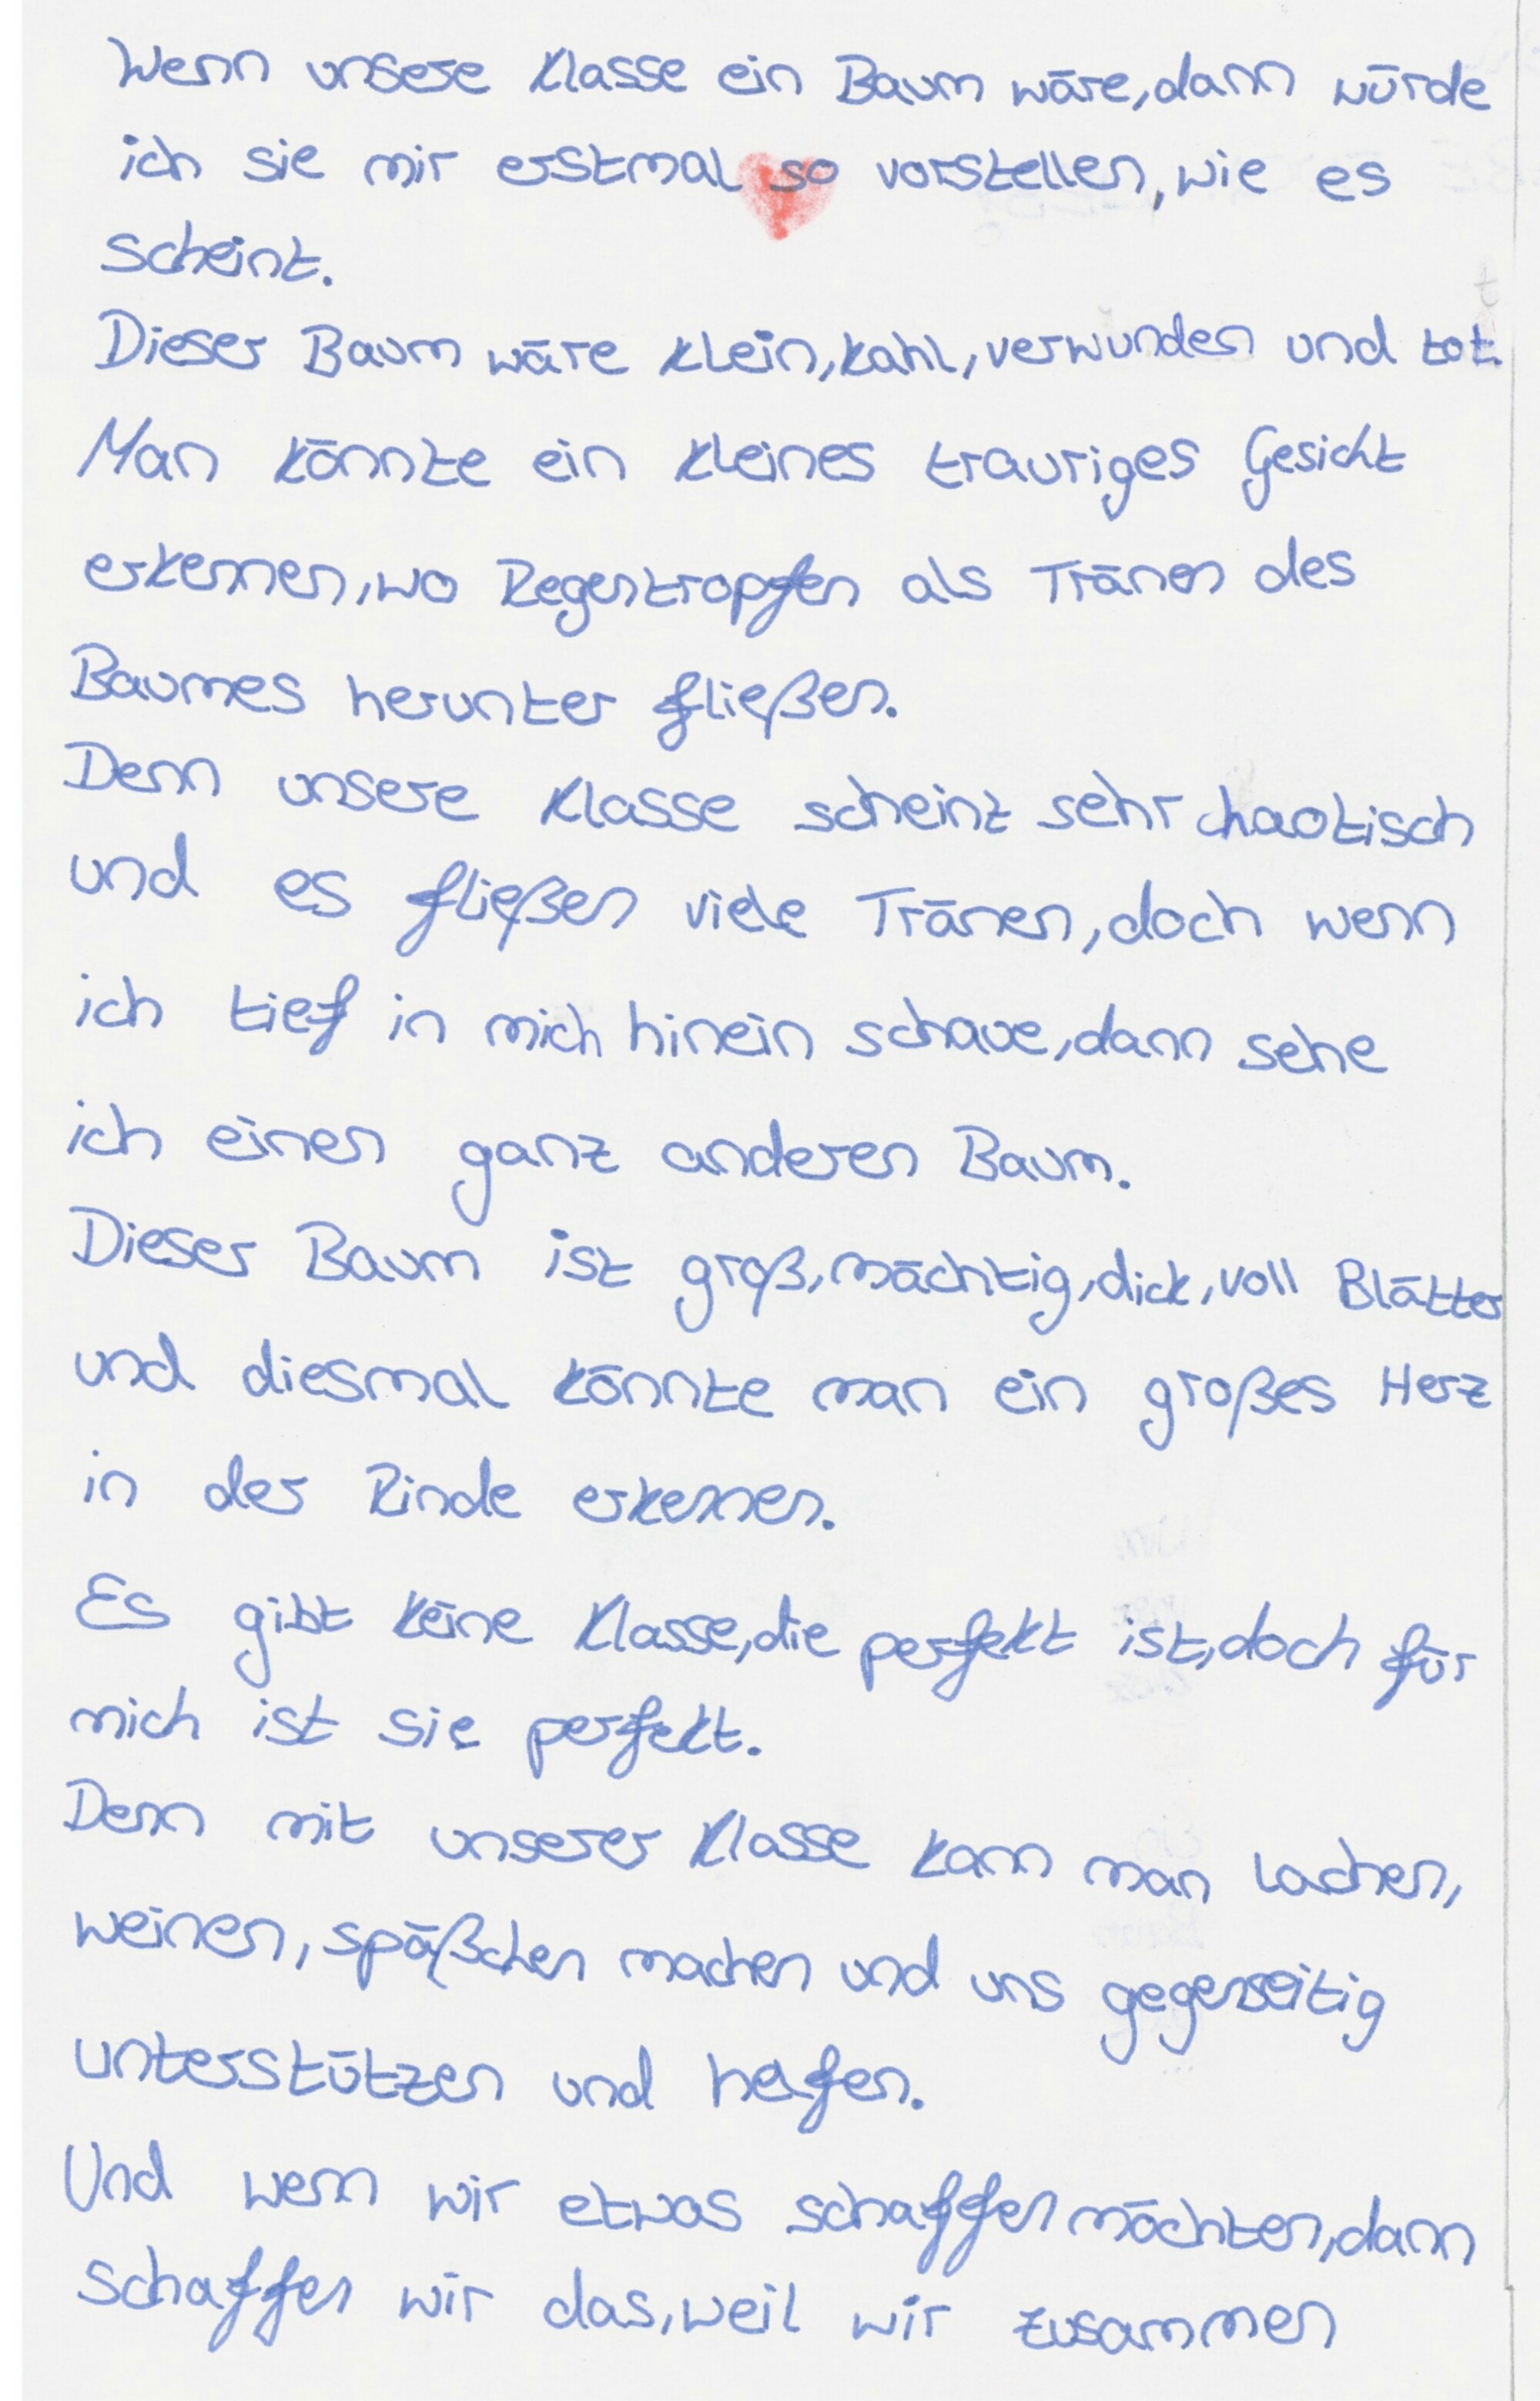 Wenn unsere Klasse ein Baum wäre, dann würde
ich sie mir erstmal so vorstellen, wie es
scheint.
Dieser Baum wäre klein, kahl, verwunden und tot.
Man könnte ein kleines trauriges Gesicht
erkennen, wo Regentropfen als Tränen des
Baumes herunter fließen.
Denn unsere Klasse scheint sehr chaotisch
und es fließen viele Tränen, doch wenn
ich tief in mich hinein schaue, dann sehe
ich einen ganz anderen Baum.
Dieser Baum ist groß, mächtig, dick, voll Blätter
und diesmal könnte man ein großes Herz
in der Rinde erkennen.
Es gibt keine Klasse, die perfekt ist, doch für
mich ist sie perfekt.
Denn mit unserer Klasse kann man lachen,
weinen, späßchen machen und uns gegenseitig
unterstützen und helfen.
Und wenn wir etwas schaffen möchten, dann
schaffen wir das, weil wir zusammen